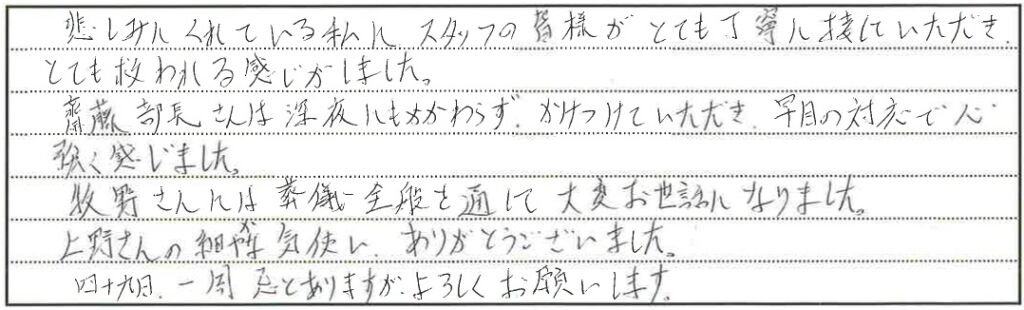 悲しみにくれている私に、スタッフの皆様がとても丁寧に接していただき、
とても救われる感じがしました。
齋藤部長さんは深夜にもかかわらず、かけつけていただき、早目の対応で心
強く感じました。
牧野さんには葬儀全般を通して大変お世話になりました。
上野さんの細やかな気使い、ありがとうございました。
四十九日、一周忌とありますが、よろしくお願いします。